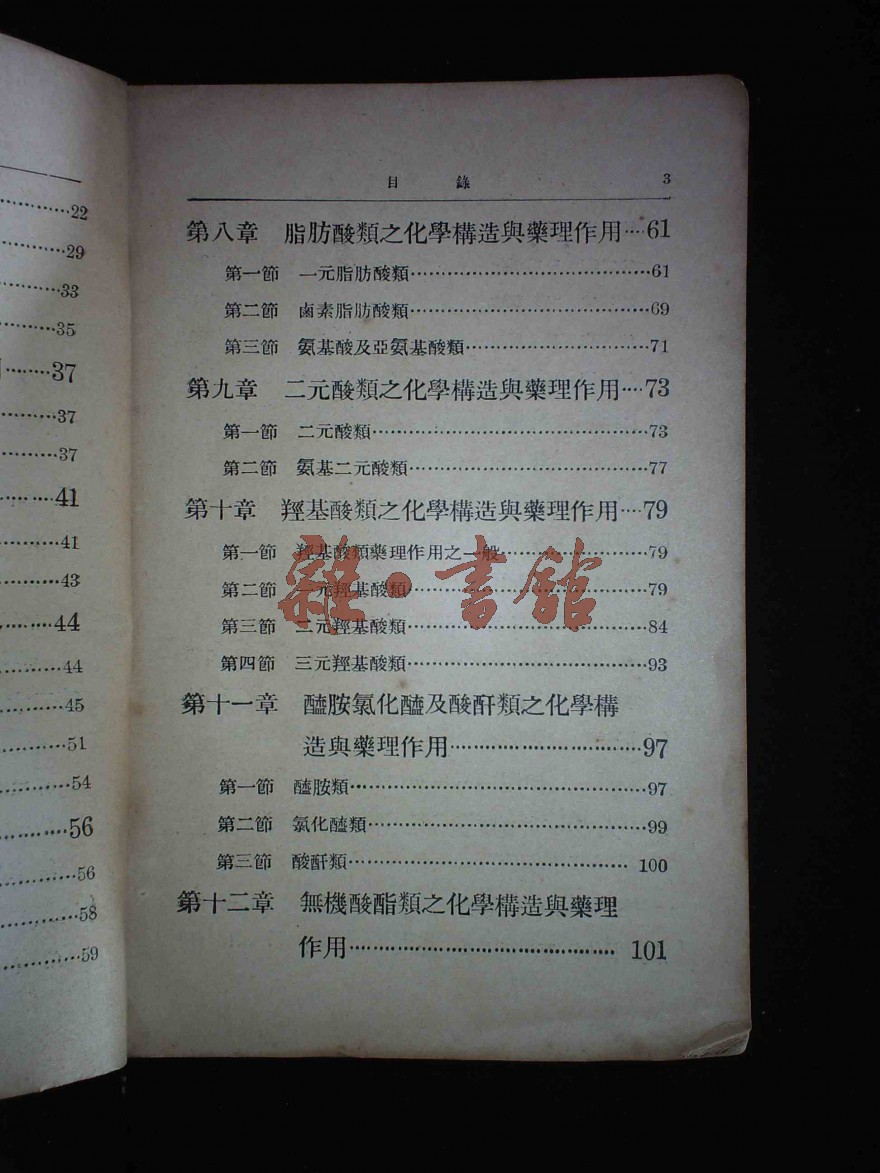 22
29
33
35
37
37
37
41
41
43
44
44
45
51
54
56
56
58
59
目 錄 3
第八章 脂肪酸類之化學構造與藥理作用…61
第一節 一元脂肪酸類…61
第二節 鹵素脂肪酸類…69
第三節 氨基酸及亞氨基酸類…71
第九章 二元酸類之化學構造與藥理作用…73
第一節 二元酸類…73
第二節 氨基二元酸類…77
第十章 羥基酸類之化學構造與藥理作用…79
第一節 羥基酸類藥理作用之一般…79
第二節 一元羥基酸類…79
第三節 二元羥基酸類…84
第四節 三元羥基酸類…93
第十一章 醯胺氯化醯及酸酐類之化學構
造與藥理作用…97
第一節 醯胺類…97
第二節 氯化醯類…99
第三節 酸酐類…100
第十二章 無機酸酯類之化學構造與藥理
作用…101
雜·書館